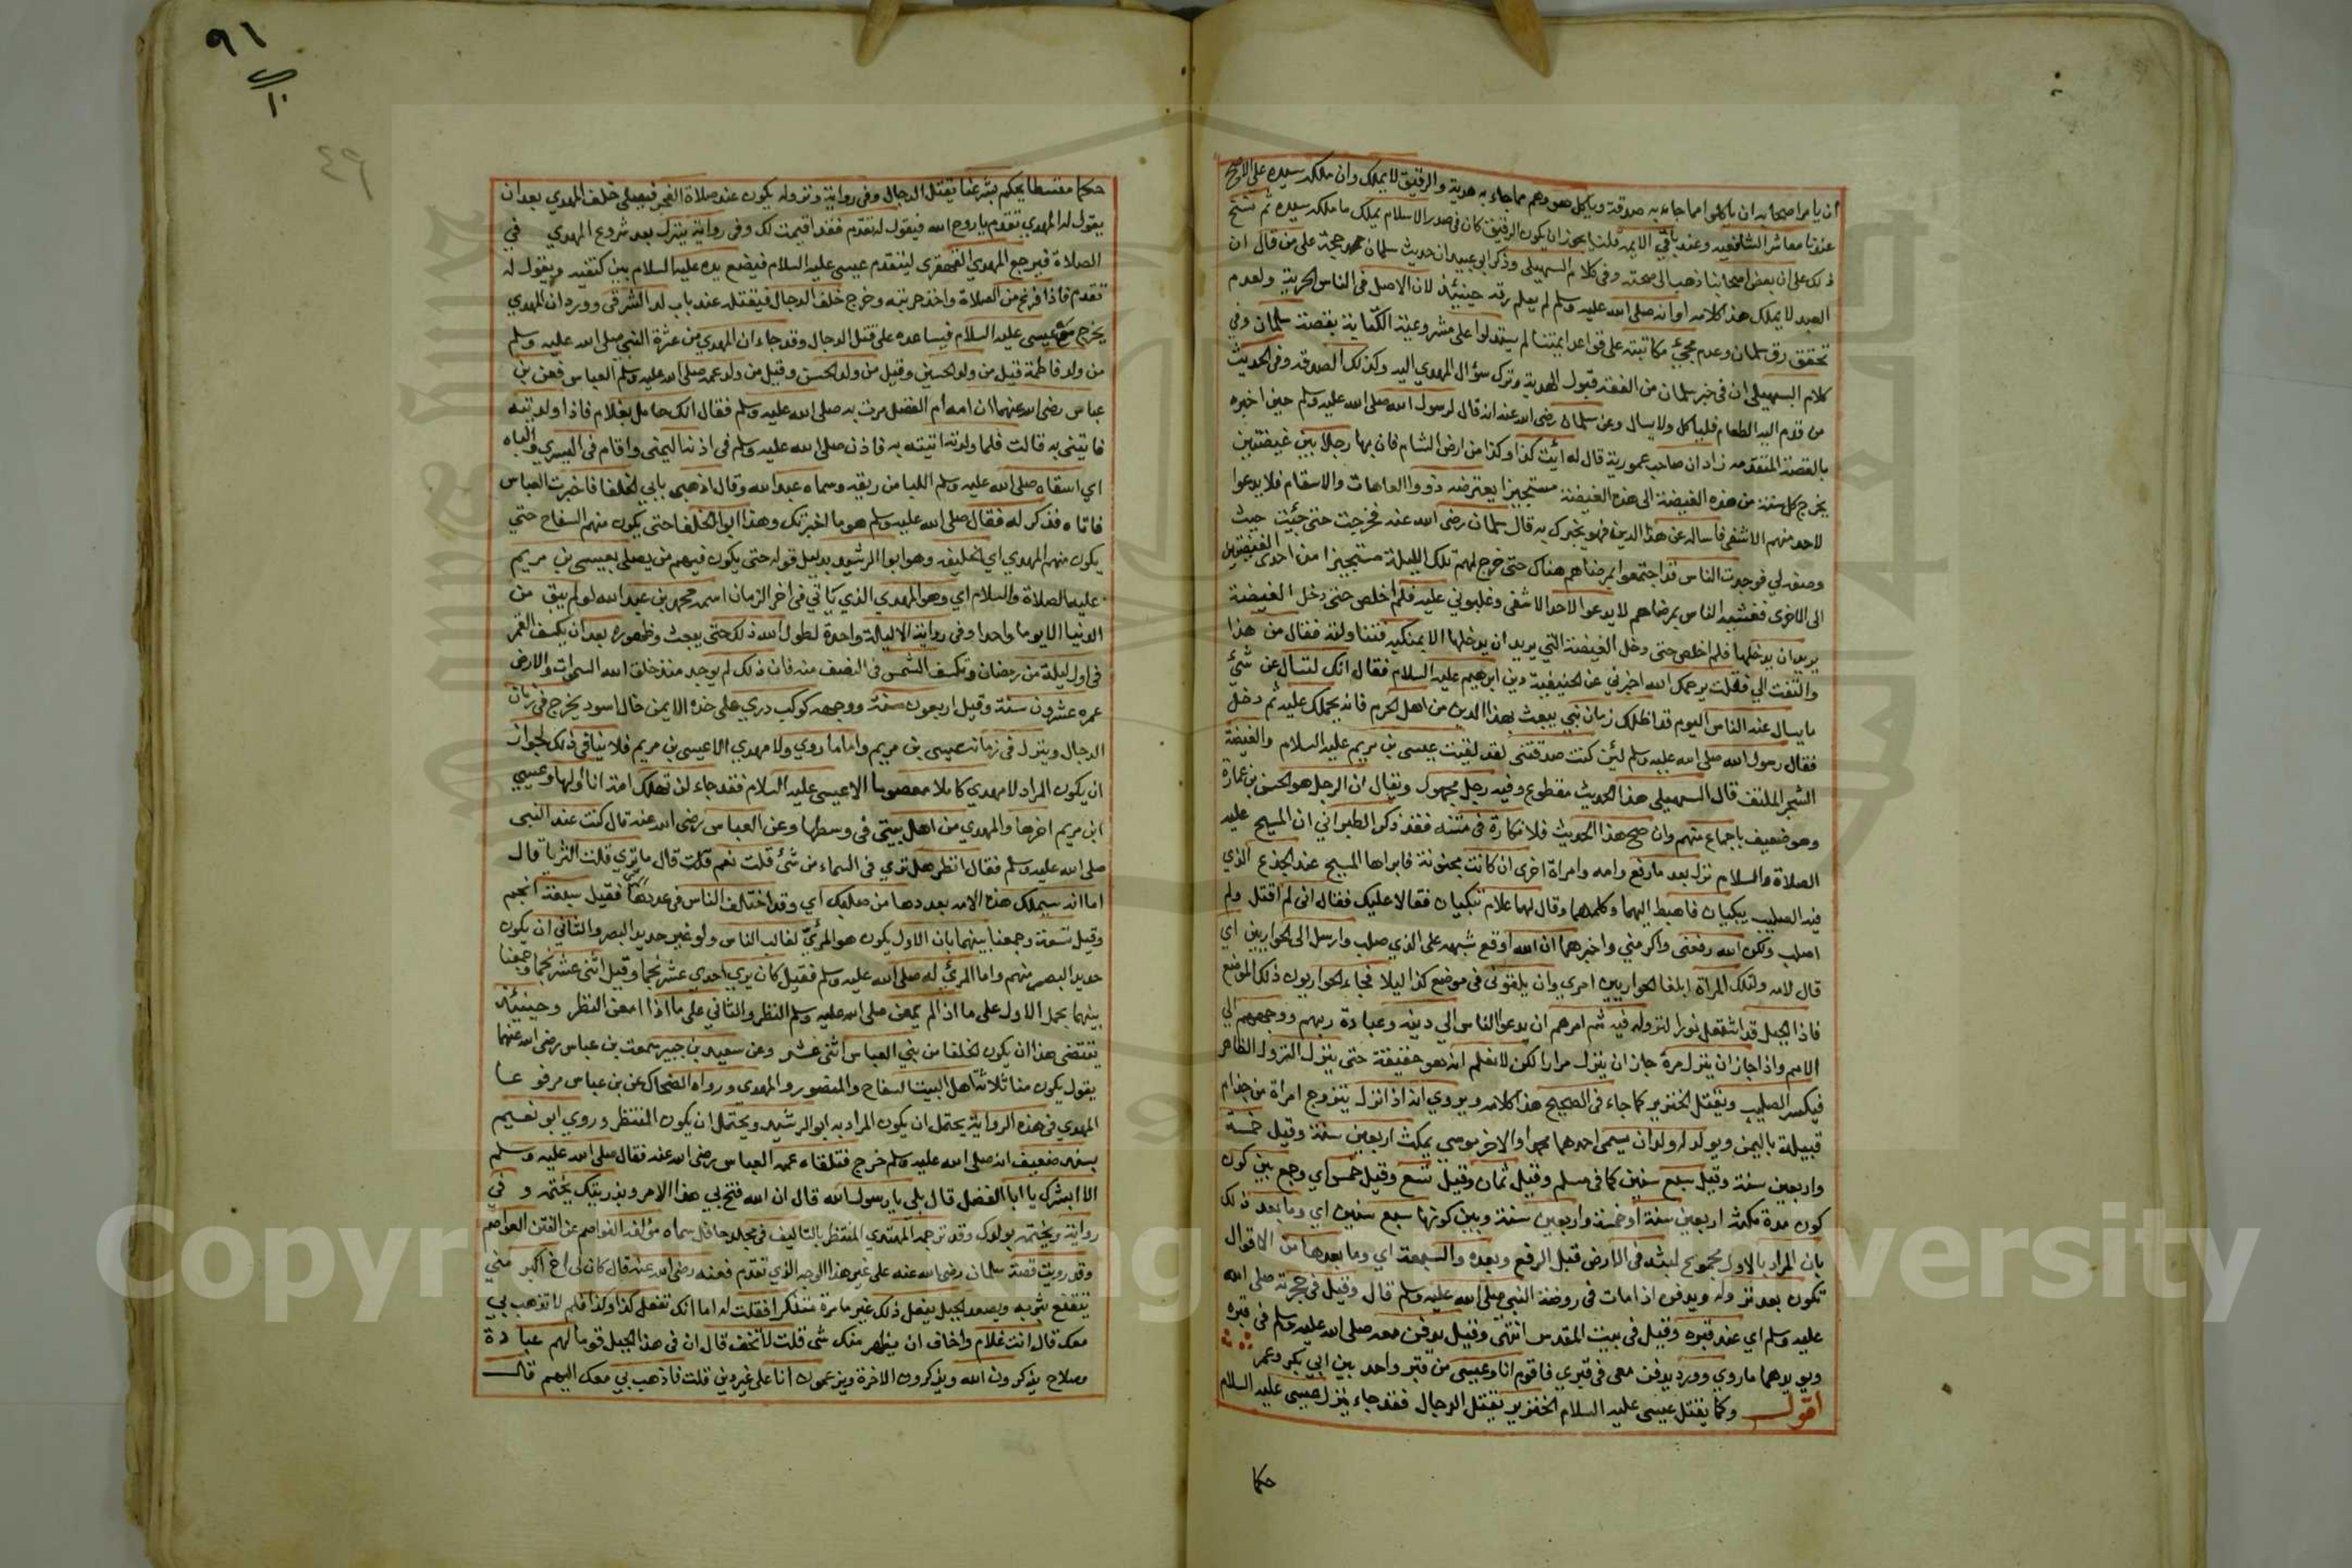 ان يامر اصحابه ان ياكلوا مما جاءه به صدقة وياكل هو وهم مما جاءه به هدية والرقيق لا يملك وان ملكه سيده على الاصح
عندنا معاشر الشافعيه وعند باقي الايمه قلنا يجوز ان يكون الرقيق كان في صدر الاسلام يملك ما ملكه سيده ثم نسخ
ذلك على ان بعض اصحابنا ذهب الى صحته وفي كلام السهيلي وذكر ابي عبيد ان حديث سلمان حجة على من قال ان
العبد لا يملك هذا كلامه او انه صلى الله عليه وسلم لم يعلم رقه حينئذ لان الاصل في الناس الحرية ولعدم
تحقق رق سلمان وعدم مجئ مكاتبته على قواعد ايمتنا لم يستدلوا على مشروعية الكتابة بقصة سلمان وفي
كلام السهيلي ان في خبر سلمان من الفقه قبول الهدية وترك سؤال المهدي اليه وكذلك الصدقه وفي الحديث
من قدم اليه الطعام فلياكل ولا يسال وعن سلمان رضي الله عنه انه قال لرسول الله صلى الله عليه وسلم حين اخبره
بالقصة المتقدمه زاد ان صاحب عمورية قال له ائت كذا وكذا من ارض الشام فان بها رجلا بين غيضتين
يخرج كل سنة من هذه الغيضة الى هذه الغيضة مستجيزا يعترضه ذووا العاهات والاسقام فلا يدعوا
لاحد منهم الا شفى فاساله عن هذا الدين فهو يخبرك به قال سلمان رضي الله عنه فخرجت حتى جئت حيث
وصفه لي فوجدت الناس قد اجتمعوا بمرضاهم هناك حتى خرج لهم تلك الليلة مستجيزا من احدى الغيضتين
الى الاخرى فغشيه الناس بمرضاهم لا يدعو لاحد الا شفى وغلبوني عليه فلم اخلص حتى دخل الغيضة
يريد ان يدخلها فلم اخلص حتى دخل الغيضة التي يريد ان يدخلها الا بمنكبه فتناولته فقال من هذا
والتفت الي فقلت يرحمك الله اخبرني عن الحنيفية دين ابرهيم عليه السلام فقال انك لتسال عن شئ
ما يسال عنه الناس اليوم قد اظلك زمان نبي يبعث بهذا الدين من اهل الحرم فاته يحملك عليه ثم دخل
فقال رسول الله صلى الله عليه وسلم لئن كنت صدقتني لقد لقيت عيسى بن مريم عليه السلام والغيضة
الشجر الملتف قال السهيلي هذا الحديث مقطوع وفيه رجل مجهول ويقال ان الرجل هو الحسن بن عمارة
وهو ضعيف باجماع منهم وان صح هذا الحديث فلا نكارة في متنه فقد ذكر الطبراني ان المسيح عليه
الصلاة والسلام نزل بعد ما رفع وامه وامراة اخرى ان كانت مجنونة فابراها المسيح عند الجذع الذي
فيه الصليب يبكيان فاهبط اليهما وكلمهما وقال لهما علام تبكيان فقالا عليك فقال اني لم اقتل ولم
اصلب ولكن الله رفعني واكرمني واخبرهما ان الله اوقع شبهه على الذي صلب وارسل الى الحواريين اي
قال لامه ولتلك المراة ابلغا الحواريين امري وان يلقوني في موضع كذا ليلا فجاء الحواريون ذلك الموضع
فاذا الجبل قد اشتعل نورا لنزوله فيه ثم امرهم ان يدعوا الناس الي دينه وعبادة ربهم ووجههم الي
الامم واذا جاز ان ينزل مرة جاز ان ينزل مرارا لكن لا نعلم انه هو حقيقة حتى ينزل النزول الظاهر
فيكسر الصليب ويقتل الخنزير كما جاء في الصحيح هذا كلامه ويروي انه اذا نزل يتزوج امراة من جذام
قبيلة باليمن ويولد له ولدان يسمى احدهما محمدا والاخر موسى يمكث اربعين سنة وقيل خمسة
واربعين سنة وقيل سبع سنين كما في مسلم وقيل ثمان وقيل تسع وقيل خمس اي وجمع بين كون
كون مدة مكثه اربعين سنة او خمسة واربعين سنة وبين كونها سبع سنين اي وما بعد ذلك
بان المراد بالاول مجموع لبثه في الارض قبل الرفع وبعده والسبعة اي وما بعدها من الاقوال
تكون بعد نزوله ويدفن اذا مات في روضة النبي صلى الله عليه وسلم قال وقيل في حجرته صلى الله
عليه وسلم اي عند قبره وقيل في بيت المقدس انتهى وقيل يدفن معه صلى الله عليه وسلم في قبره
ويويدهما ما روي وورد يدفن معي في قبري فاقوم انا وعيسى من قبر واحد بين ابي بكر وعمر
اقول وكما يقتل عيسى عليه السلام الخنزير يقتل الدجال فقد جاء ينزل عيسى عليه السلام
حكما
٩١
١٠
٤٩
حكما مقسطا يحكم بشرعنا يقتل الدجال وفي رواية ونزوله يكون عند صلاة الفجر فيصلي خلف المهدي بعد ان
يقول له المهدي تقدم يا روح الله فيقول له تقدم فقد اقيمت لك وفي رواية ينزل بعد شروع المهدي في
الصلاة فيرجع المهدي القهقرى ليتقدم عيسى عليه السلام فيضع يده عليه السلام بين كتفيه ويقول له
تقدم فاذا فرغ من الصلاة واخذ حربته وخرج خلف الدجال فيقتله عند باب لد الشرقي وورد ان المهدي
يخرج مع عيسى عليه السلام فيساعده على قتل الدجال وقد جاء ان المهدي من عترة النبي صلى الله عليه وسلم
من ولد فاطمة قيل من ولد الحسين وقيل من ولد الحسن وقيل من ولد عمه صلى الله عليه وسلم العباس فعن بن
عباس رضي الله عنهما ان امه ام الفضل مرت به صلى الله عليه وسلم فقال انك حامل بغلام فاذا ولدتيه
فاتيني به قالت فلما ولدته اتيته به فاذن صلى الله عليه وسلم في اذنه اليمنى واقام في اليسري والباه
اي اسقاه صلى الله عليه وسلم اللبا من ريقه وسماه عبد الله وقال اذهبي بابي الخلفا فاخبرت العباس
فاتاه فذكر له فقال صلى الله عليه وسلم هو ما اخبرتك وهذا ابو الخلفا حتى يكون منهم السفاح حتي
يكون منهم المهدي اي الخليفه وهو ابو الرشيد بدليل قوله حتى يكون فيهم من يصلى بعيسى بن مريم
عليه الصلاة والسلام اي وهو المهدي الذي ياتي في اخر الزمان اسمه محمد بن عبد الله لو لم يبق من
الدنيا الا يوما واحدا وفي رواية الا ليلة واحدة لطول الله ذلك حتى يبعث وظهوره بعد ان يكسف القمر
في اول ليلة من رمضان وتكسف الشمس في النصف منه فان ذلك لم يوجد منذ خلق الله السموات والارض
عمره عشرون سنة وقيل اربعون سنة ووجهه كوكب دري على خده الايمن خال اسود يخرج في زمان
الدجال وينزل في زمانه عيسى بن مريم واما ما روي ولا مهدي الا عيسى بن مريم فلا ينافي ذلك لجواز
ان يكون المراد لا مهدي كاملا معصوما الا عيسى عليه السلام فقد جاء لن تهلك امة انا اولها وعيسي
ابن مريم اخرها والمهدي من اهل بيتي في وسطها وعن العباس رضي الله عنه قال كنت عند النبي
صلى الله عليه وسلم فقال انظر هل تري في السماء من شئ قلت نعم قال ما تري قلت الثريا قال
اما انه سيملك هذه الامه بعددها من صلبك اي وقد اختلف الناس في عددها فقيل سبعة انجم
وقيل تسعة وجمعنا بينهما بان الاول يكون هو المرئي لغالب الناس ولو غير حديد البصر والثاني ان يكون
حديد البصر منهم واما المرئي له صلى الله عليه وسلم فقيل كان يري احدي عشر نجما وقيل اثني عشر نجما وجمعنا
بينهما بحمل الاول على ما اذا لم يمعن صلى الله عليه وسلم النظر والثاني على ما اذا امعن النظر وحينئذ
تقتضي هذا ان يكون الخلفا من بني العباس اثني عشر وعن سعيد بن جبير سمعت بن عباس رضي الله عنهما
يقول يكون منا ثلاثة اهل البيت السفاح والمنصور والمهدي ورواه الضحاك عن بن عباس مرفوعا
المهدي في هذه الرواية يحتمل ان يكون المراد به ابو الرشيد ويحتمل ان يكون المنتظر وروي ابو نعيم
بسند ضعيف انه صلى الله عليه وسلم خرج فتلقاه عمه العباس رضي الله عنه فقال صلى الله عليه وسلم
الا ابشرك يا ابا الفضل قال بلى يا رسول الله قال ان الله فتح بي هذا الامر وبذريتك يختمه وفي
رواية ويختمه بولدك وقد ترجمه المهتدي المنتظر بالتاليف في مجلد حافل سماه مؤلفه الفواصم عن الفتن القواصم
وقد رويت قصة سلمان رضي الله عنه على غير هذا الوجه الذي تقدم فعنه رضي الله عنه قال كان لي اخ اكبر مني
يتقنع بثوبه ويصعد الجبل يفعل ذلك غير ما مرة متنكرا فقلت له اما انك تفعل كذا وكذا فلم لا تذهب بي
معك قال انت غلام واخاف ان يظهر منك شئ قلت لا تخف قال ان في هذا الجبل قوما لهم عبادة
وصلاح يذكرون الله ويذكرون الاخرة ويزعمون انا على غير دين قلت فاذهب بي معك اليهم قال